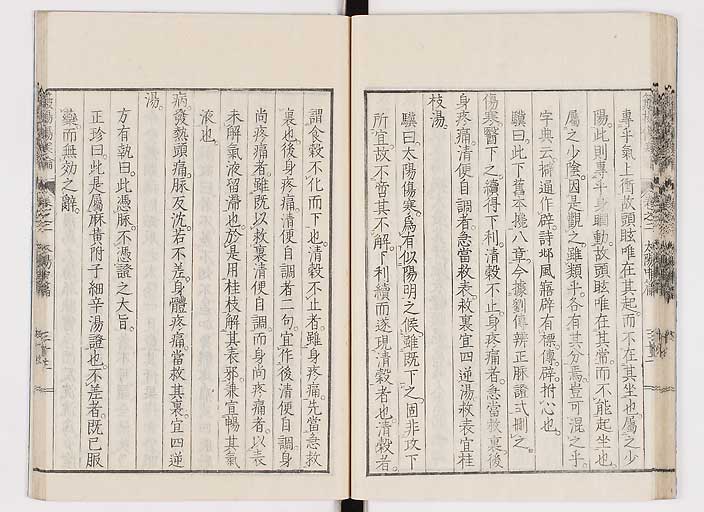 專乎氣上衝故頭眩唯在其起而不在其坐也屬之少
陽此則專乎身瞤動故頭眩唯在其常而不能起坐也
屬之少陰因是觀之雖類乎各有其分焉豈可混之乎
字典云擗通作辟詩邶風寤辟有摽傳辟拊心也
驥曰此下舊本攙八章今據劉傳辨正脉證式刪之
傷寒醫下之續得下利清穀不止身疼痛者急當救裏後
身疼痛清便自調者急當救表救裏宜四逆湯救表宜桂
枝湯
驥曰太陽傷寒為有似陽明之候雖既下之固非攻下
所宜故不啻其不解下利續而遂現清穀者也清穀者
謂食穀不化而下也清穀不止者雖身疼痛先當急救
裏也後身疼痛清便自調者二句宜作後清便自調身
尚疼痛者雖既以救裏清便自調而身尚疼痛者以表
未解氣液留滯也於是用桂枝解其表邪兼宜暢其氣
液也
病發熱頭痛脈反沈若不差身體疼痛當救其裏宜四逆
湯
方有執曰此憑脈不憑證之大旨
正珍曰此是屬麻黃附子細辛湯證也不差者既已服
藥而無効之辭